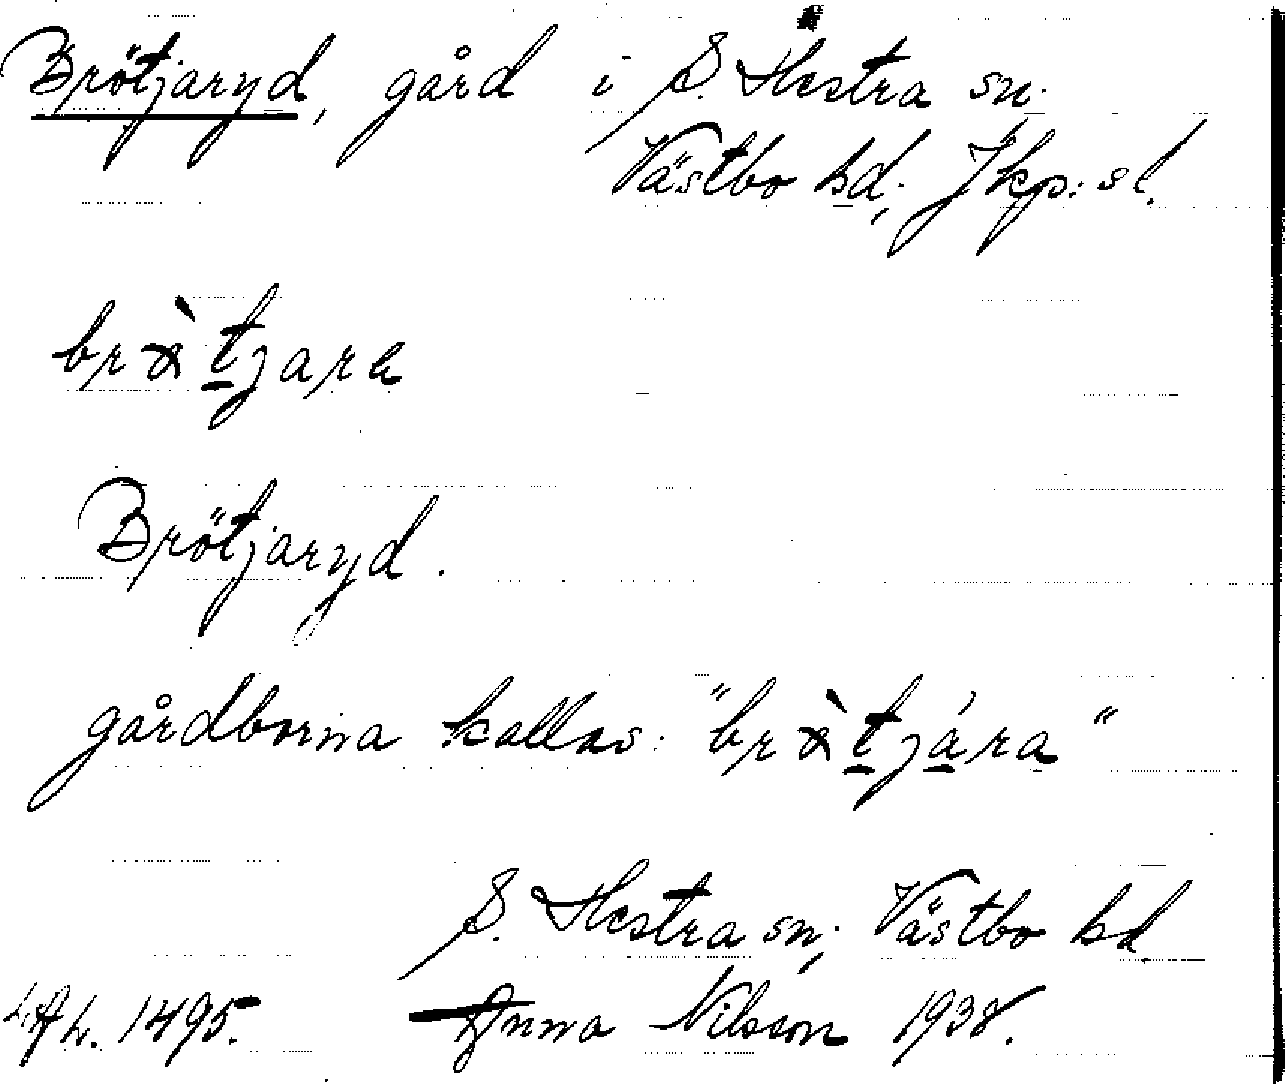 Brötjaryd, gård i S. Hestra sn.
Västbo hd, Jkp:s l.
br&#x0254;̀tjara
Brötjaryd.
gårdborna kallas: "br&#x0254;̀tjára"
S. Hestra sn, Västbo hd.
1495. Anna Nilsson 1938.